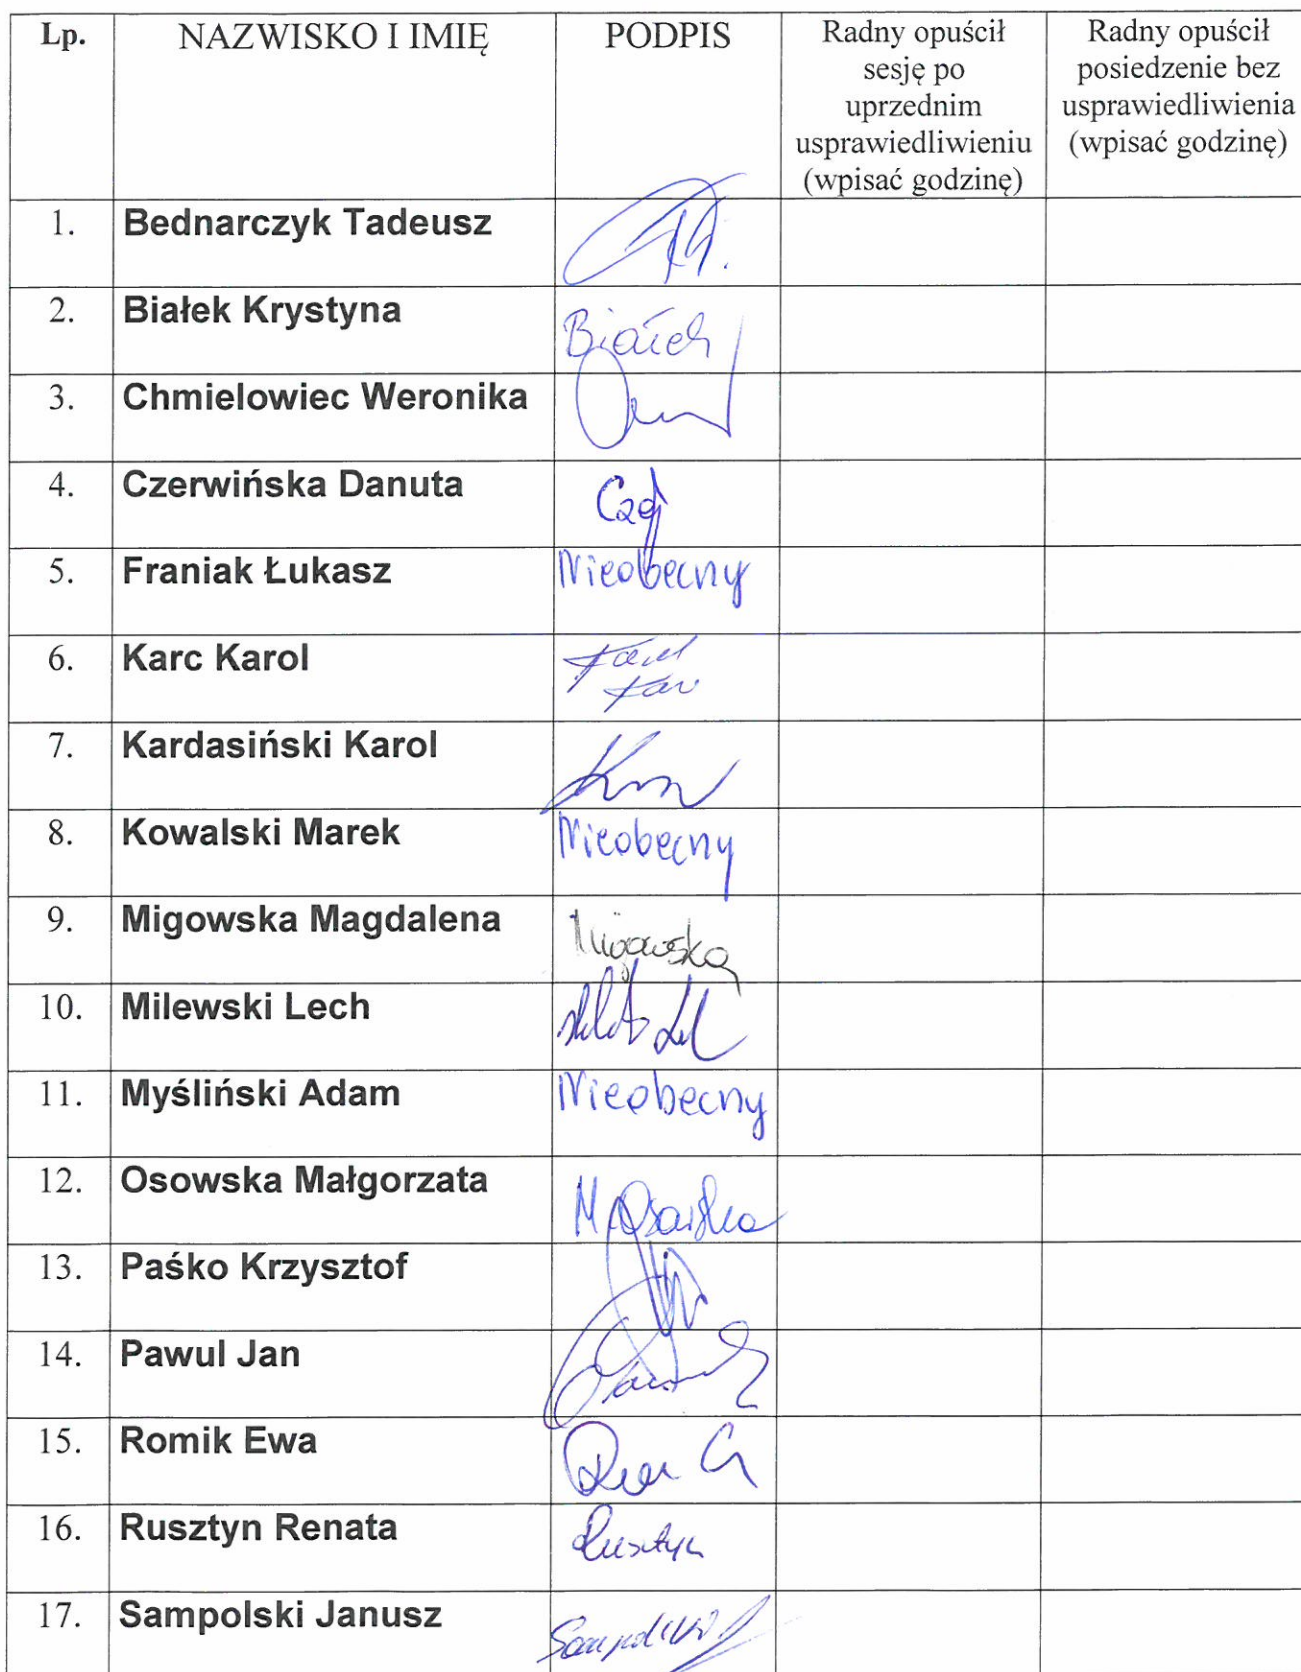 Lp. NAZWISKO I IMIĘ PODPIS Radny opuścił Radny opuścił
sesję po posiedzenie bez
uprzednim usprawiedliwienia
usprawiedliwieniu (wpisać godzinę)
(wpisać godzinę)
1. Bednarczyk Tadeusz
2. Białek Krystyna Białek
3. Chmielowiec Weronika
4. Czerwińska Danuta
5. Franiak Łukasz Nieobecny
6. Karc Karol
7. Kardasiński Karol
8. Kowalski Marek Nieobecny
9. Migowska Magdalena Migowska
10. Milewski Lech
11. Myśliński Adam Nieobecny
12. Osowska Małgorzata M. Osowska
13. Paśko Krzysztof
14. Pawul Jan
15. Romik Ewa
16. Rusztyn Renata Rusztyn
17. Sampolski Janusz